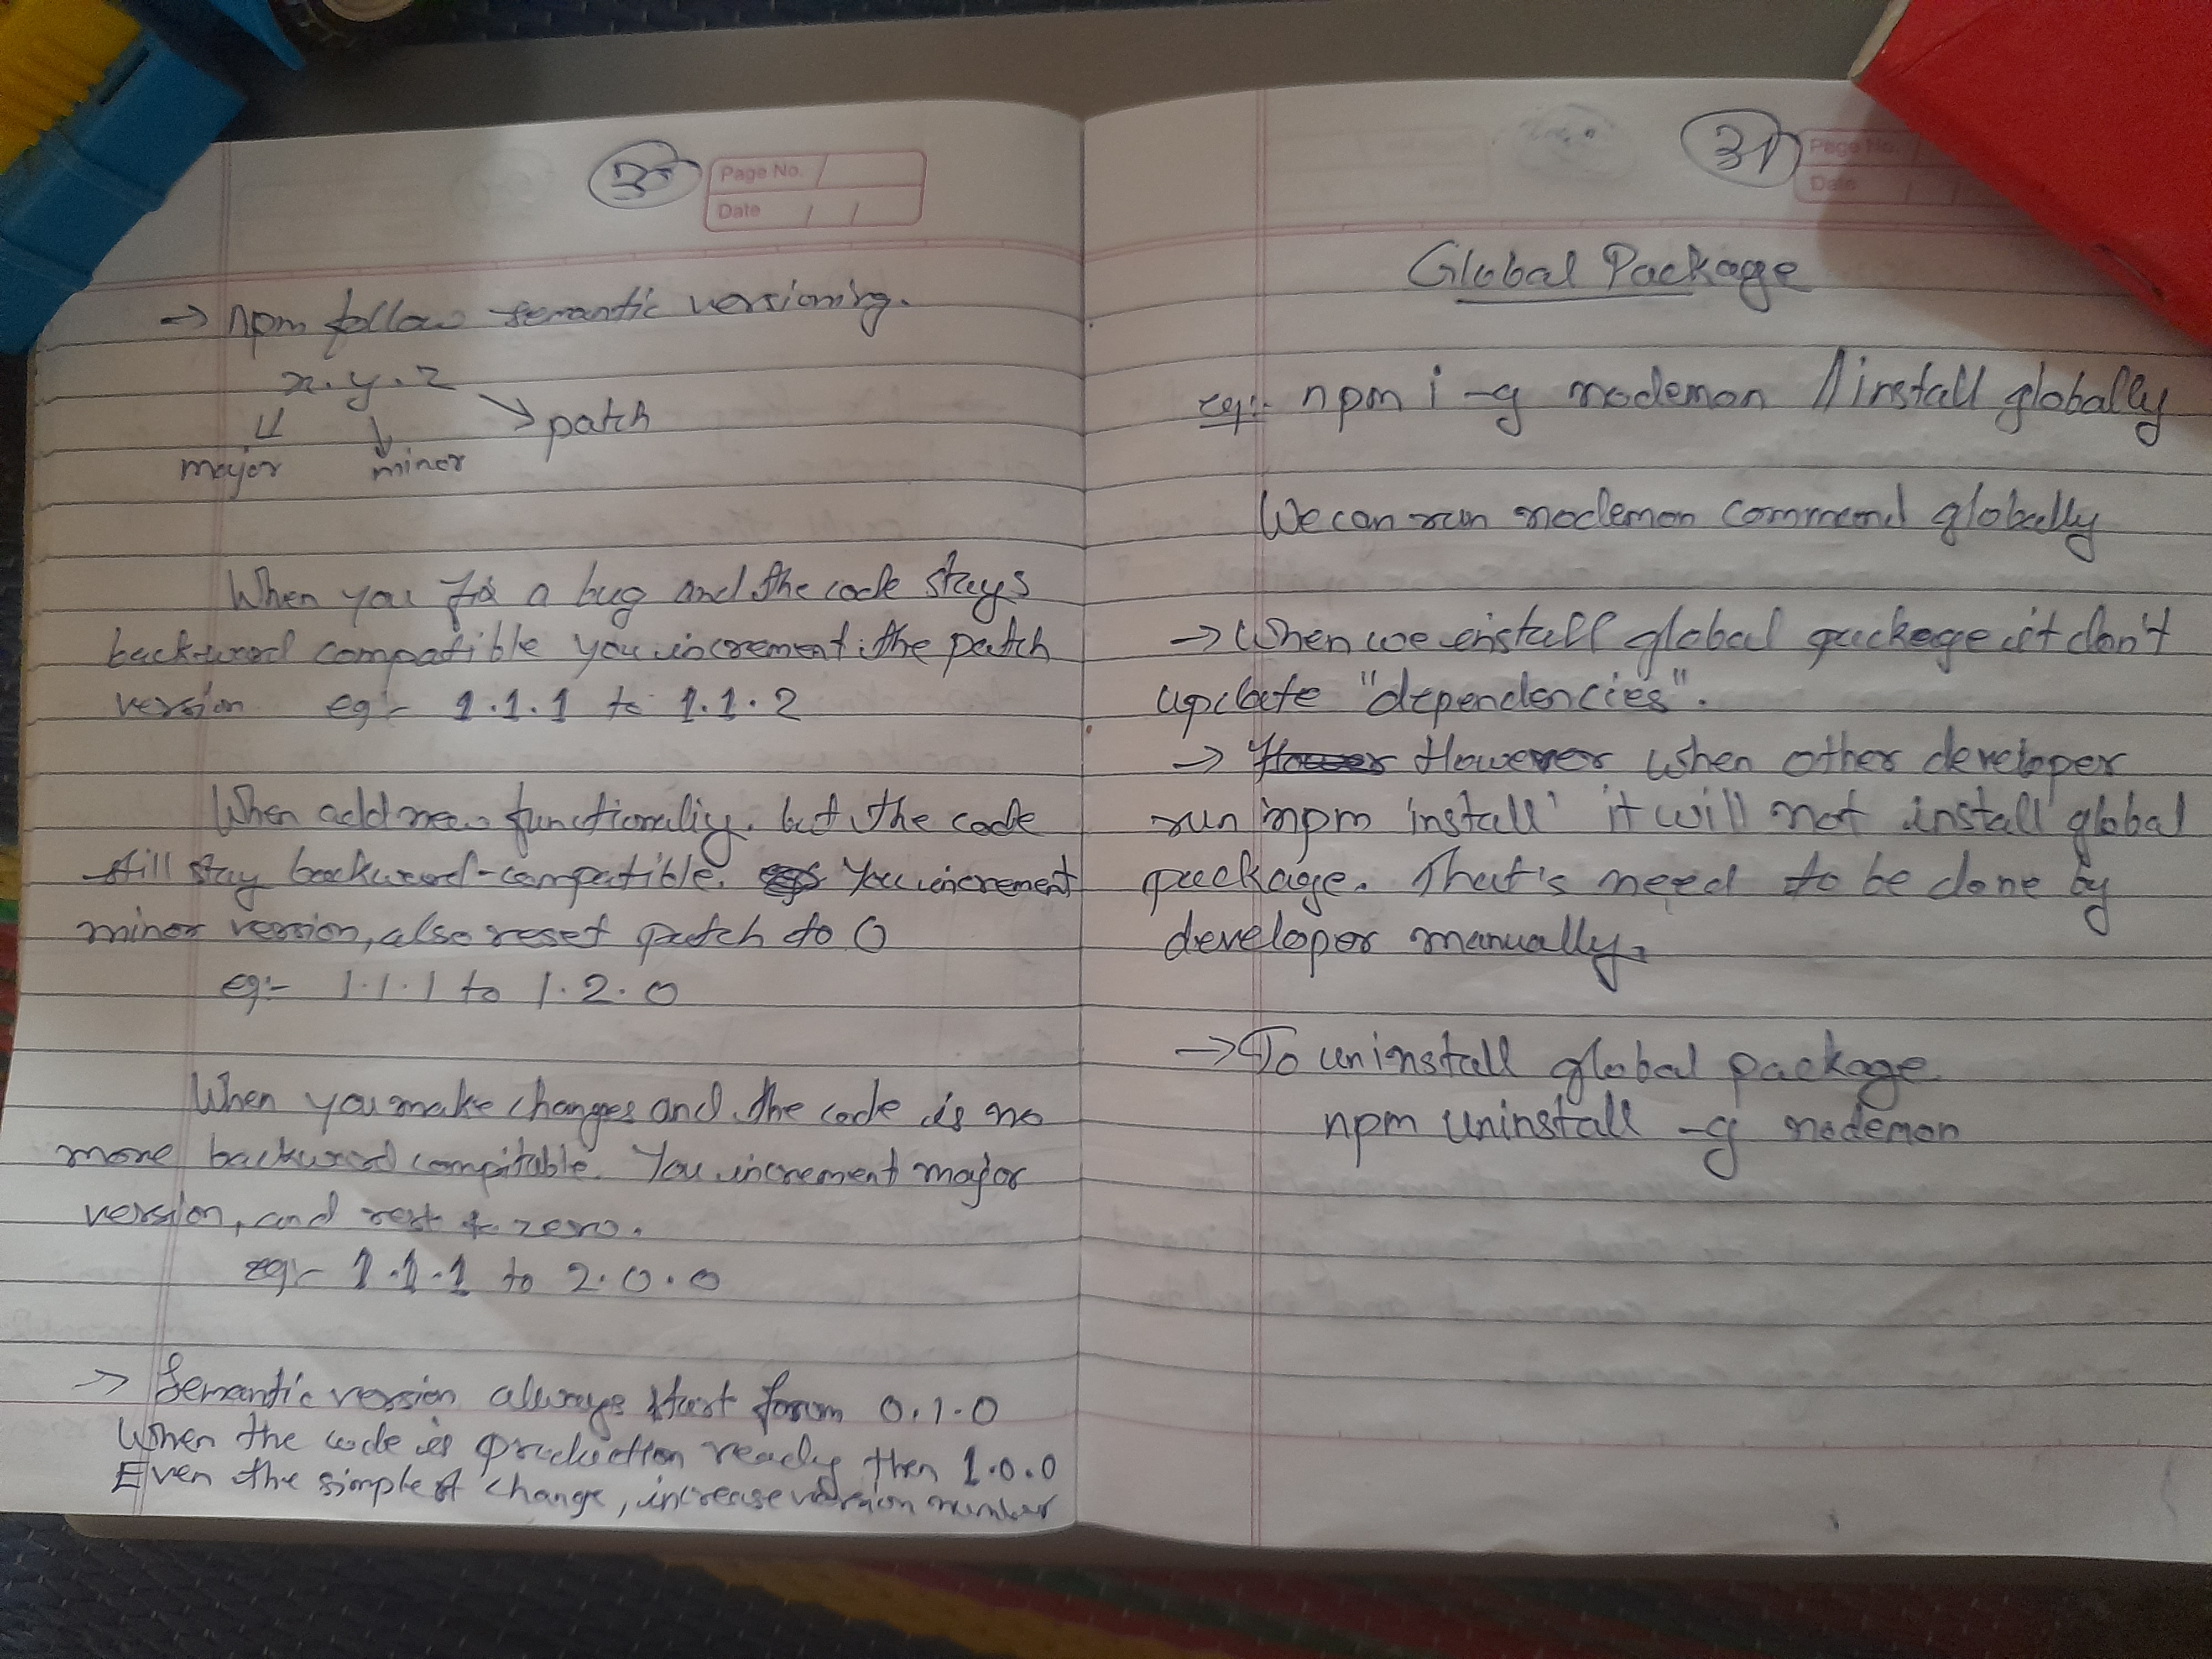 30
Page No.
Date / /
→ npm follow semantic versioning.
x.y.z
major minor patch
When you fix a bug and the code stays
backward compatible you increment the patch
version eg:- 1.1.1 to 1.1.2
When add new functionaliy. but the code
still stay backward-compatible. You increment
minor version, also reset patch to 0
eg:- 1.1.1 to 1.2.0
When you make changes and the code is no
more backward compitable. You increment major
version, and rest to zero.
eg:- 1.1.1 to 2.0.0
→ Semantic version always start forum 0.1.0
When the code is production ready then 1.0.0
Even the simplest change, increase version number
31
Page No.
Date / /
Global Package
eg:- npm i -g nodemon //install globally
We can run nodemon command globally
→ When we install global package it don't
update "dependencies".
→ However when other developer
run 'npm install' it will not install global
package. That's need to be done by
developer manually.
→ To uninstall global package
npm uninstall -g nodemon